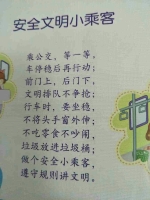 安全文明小乘客
乘公交，等一等，
车停稳后再行动；
前门上，后门下，
文明排队不争抢；
行车时，要坐稳，
不将头手窗外伸；
不吃零食不吵闹，
垃圾放进垃圾桶；
做个安全小乘客，
遵守规则讲文明。